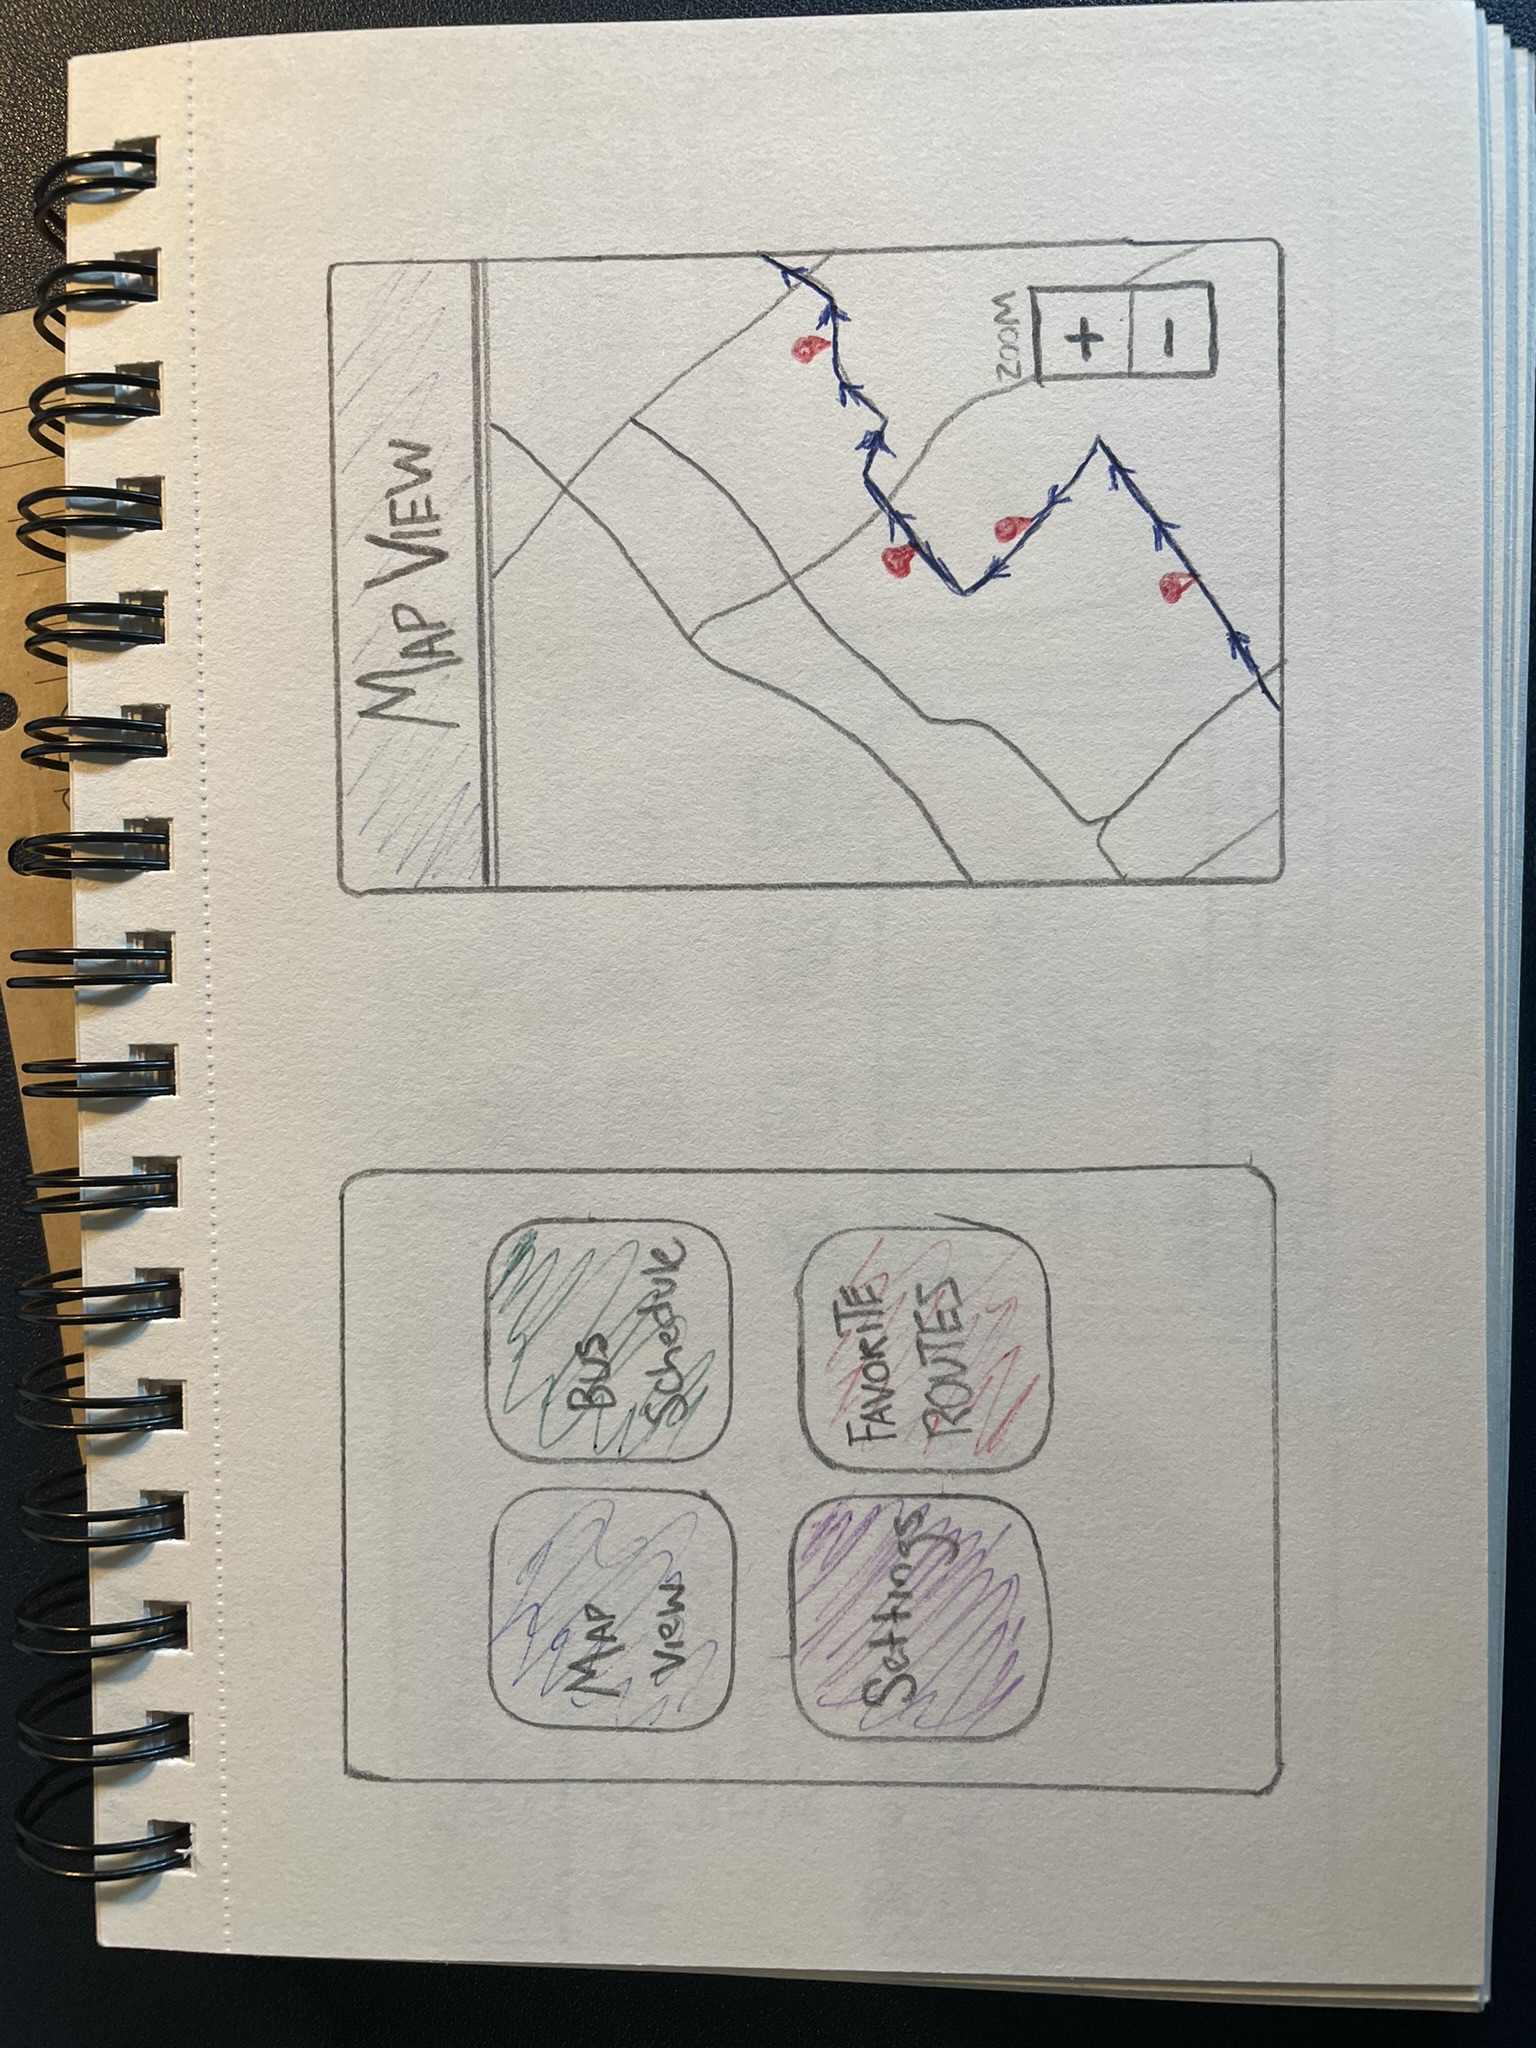 Map
View
Bus
Schedule
Settings
FAVORITE
ROUTES
MAP VIEW
ZOOM
+
-